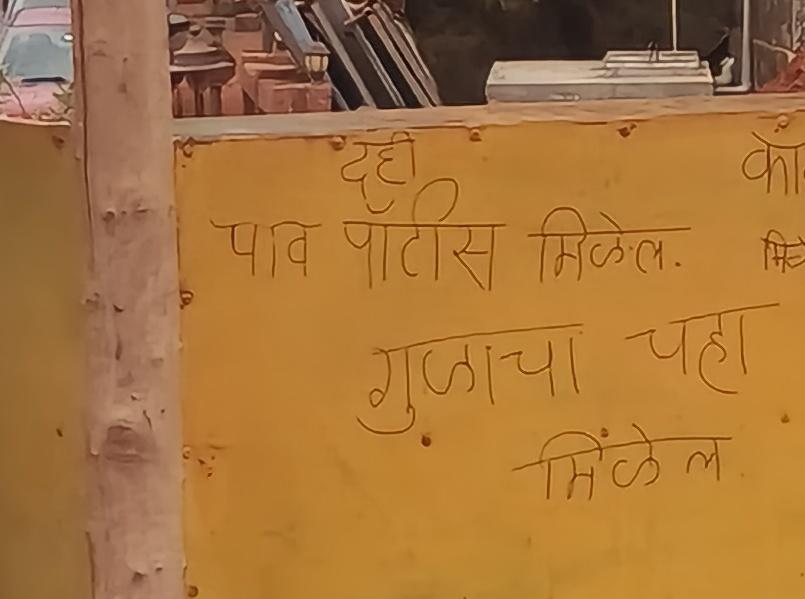 दही
पाव पॅटीस मिळेल.
गुळाचा चहा
मिळेल